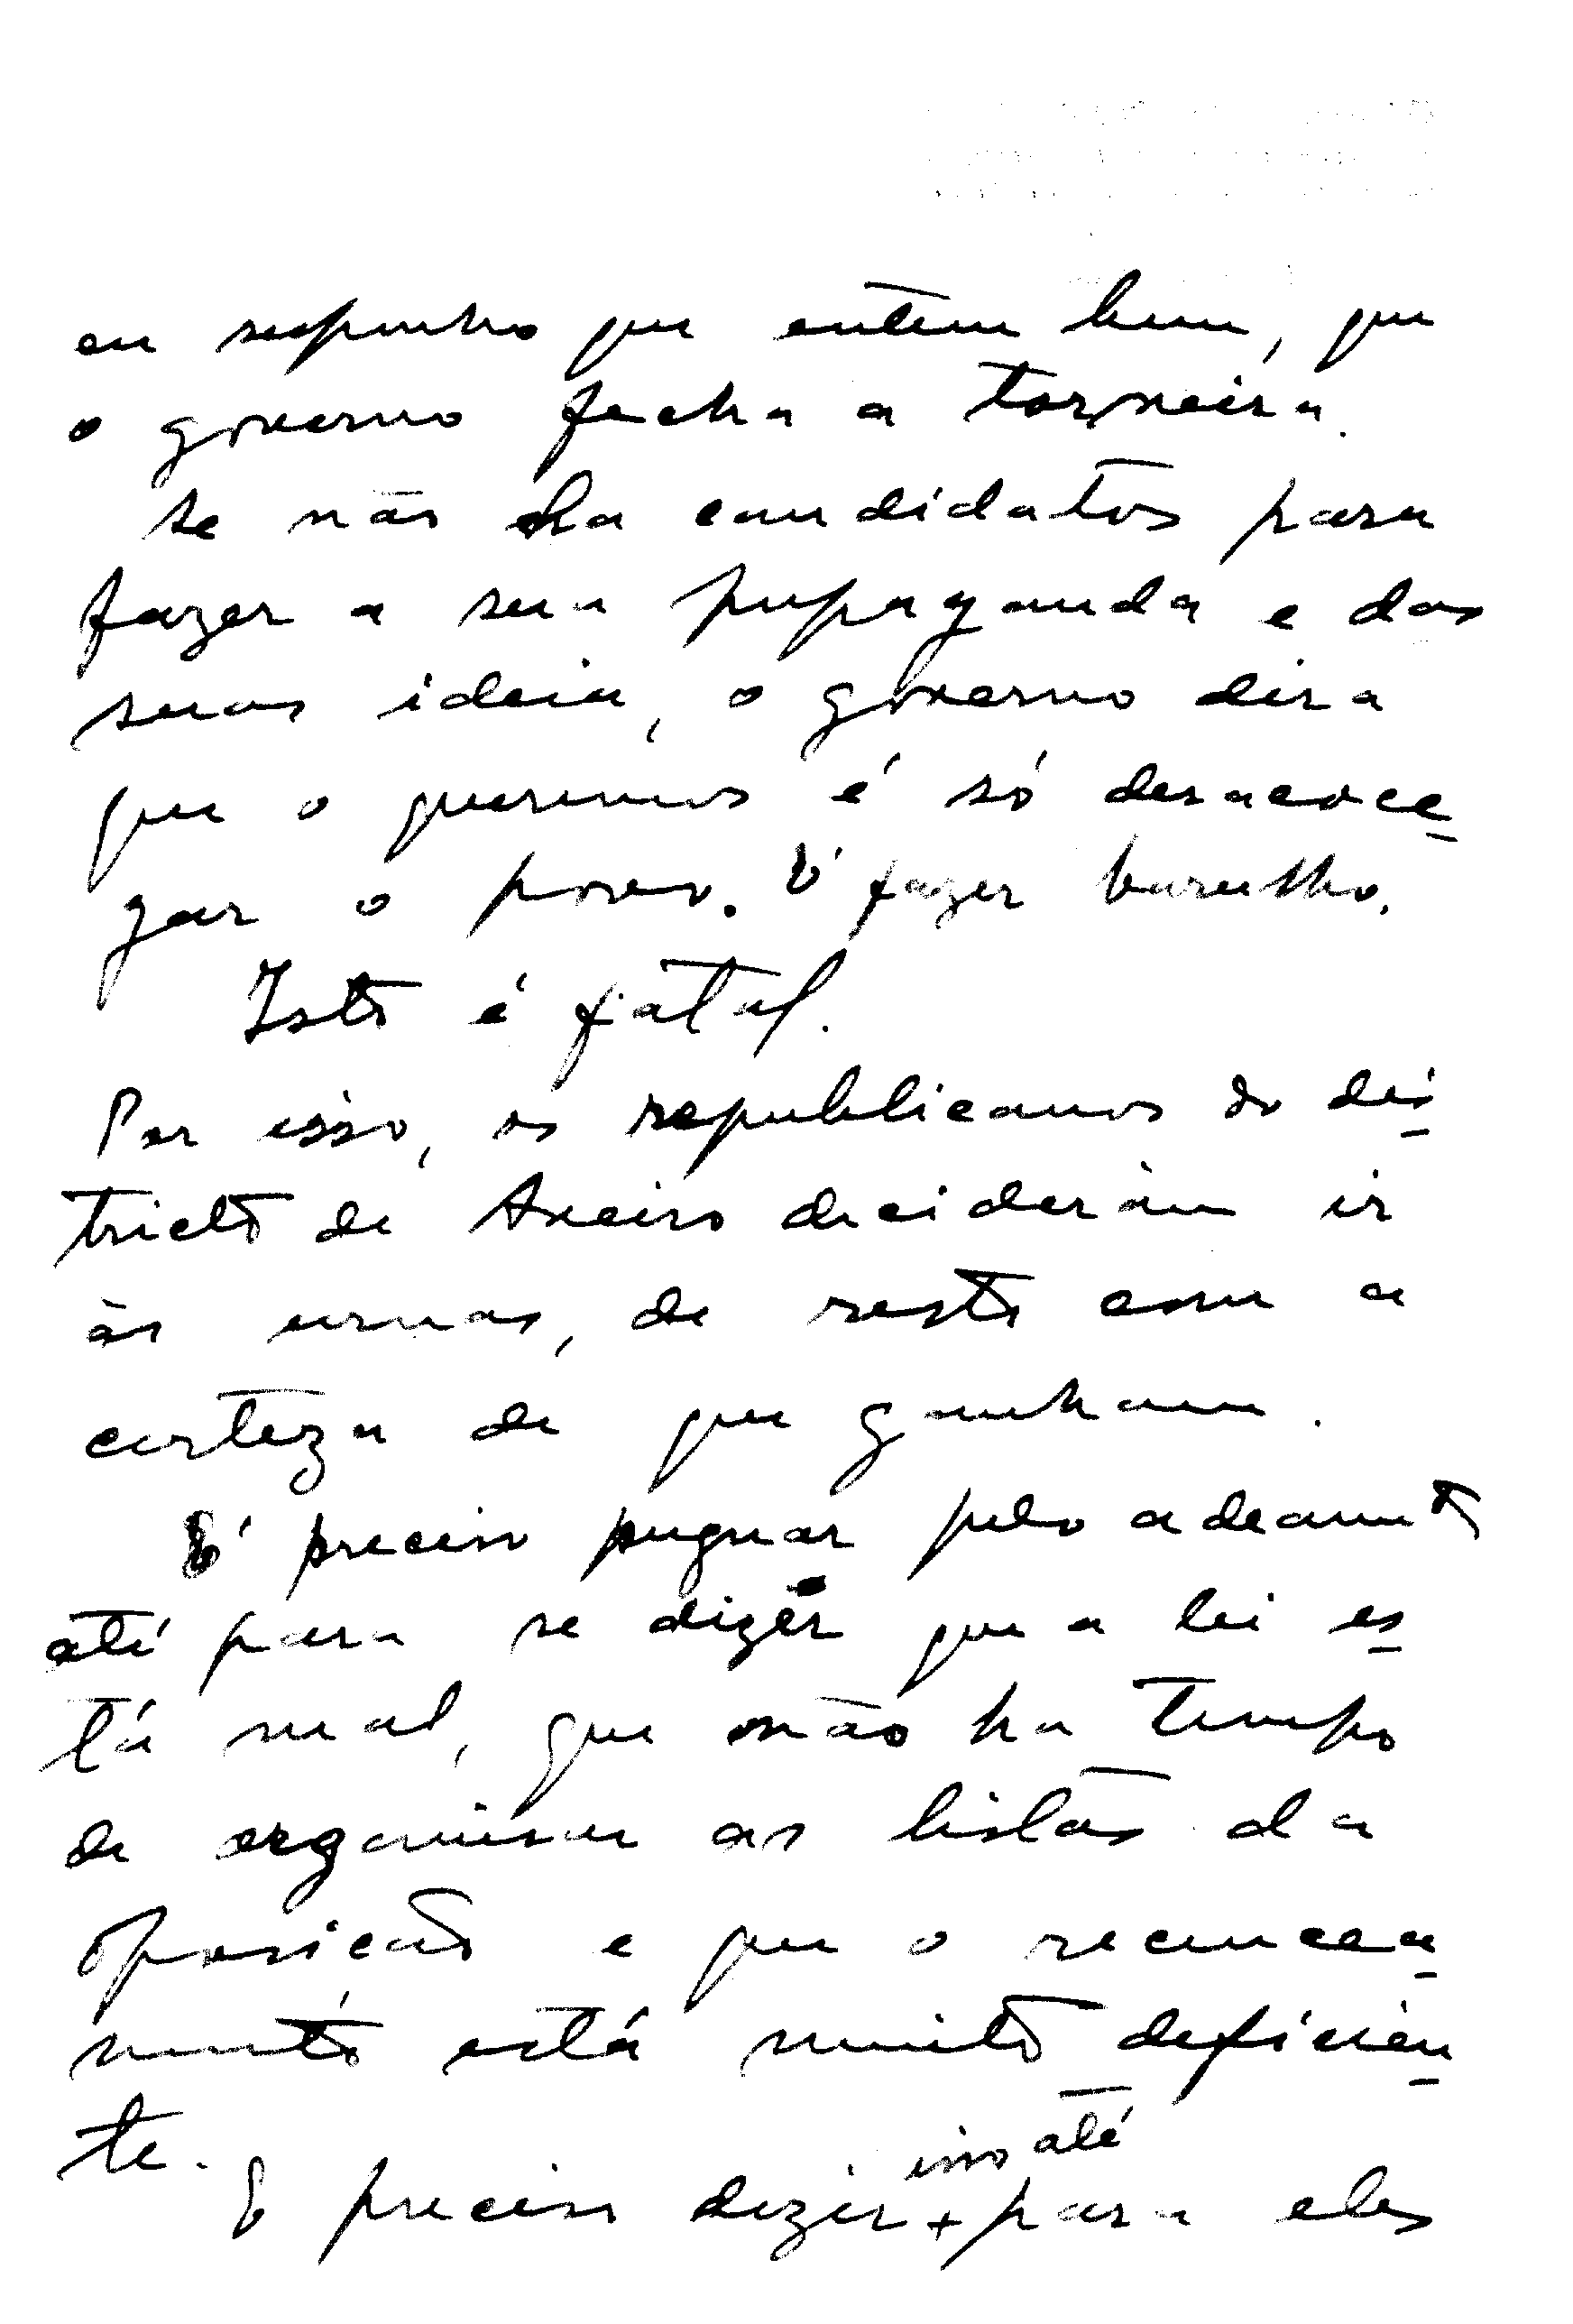 eu suponho que entem bem, que
o governo fecha a torneira.
Se não ha candidatos para
fazer a sua propaganda e das
suas ideia, o governo dira
que o queremos é só desacoce-
gar o povo. É fazer barulho.
Isto é fatal.
Por isso, os republicanos do dis-
tricto de Aveiro decideràm ir
às urnas, de resto com a
certeza de que ganham.
É preciso pugnar pelo adeamento
até para se dizer que a lei es-
tá mal, que não ha tempo
de organisar as listas da
oposicão e que o recencea-
mento está muito deficien-
te.
E preciso dizer + para eles
isso até